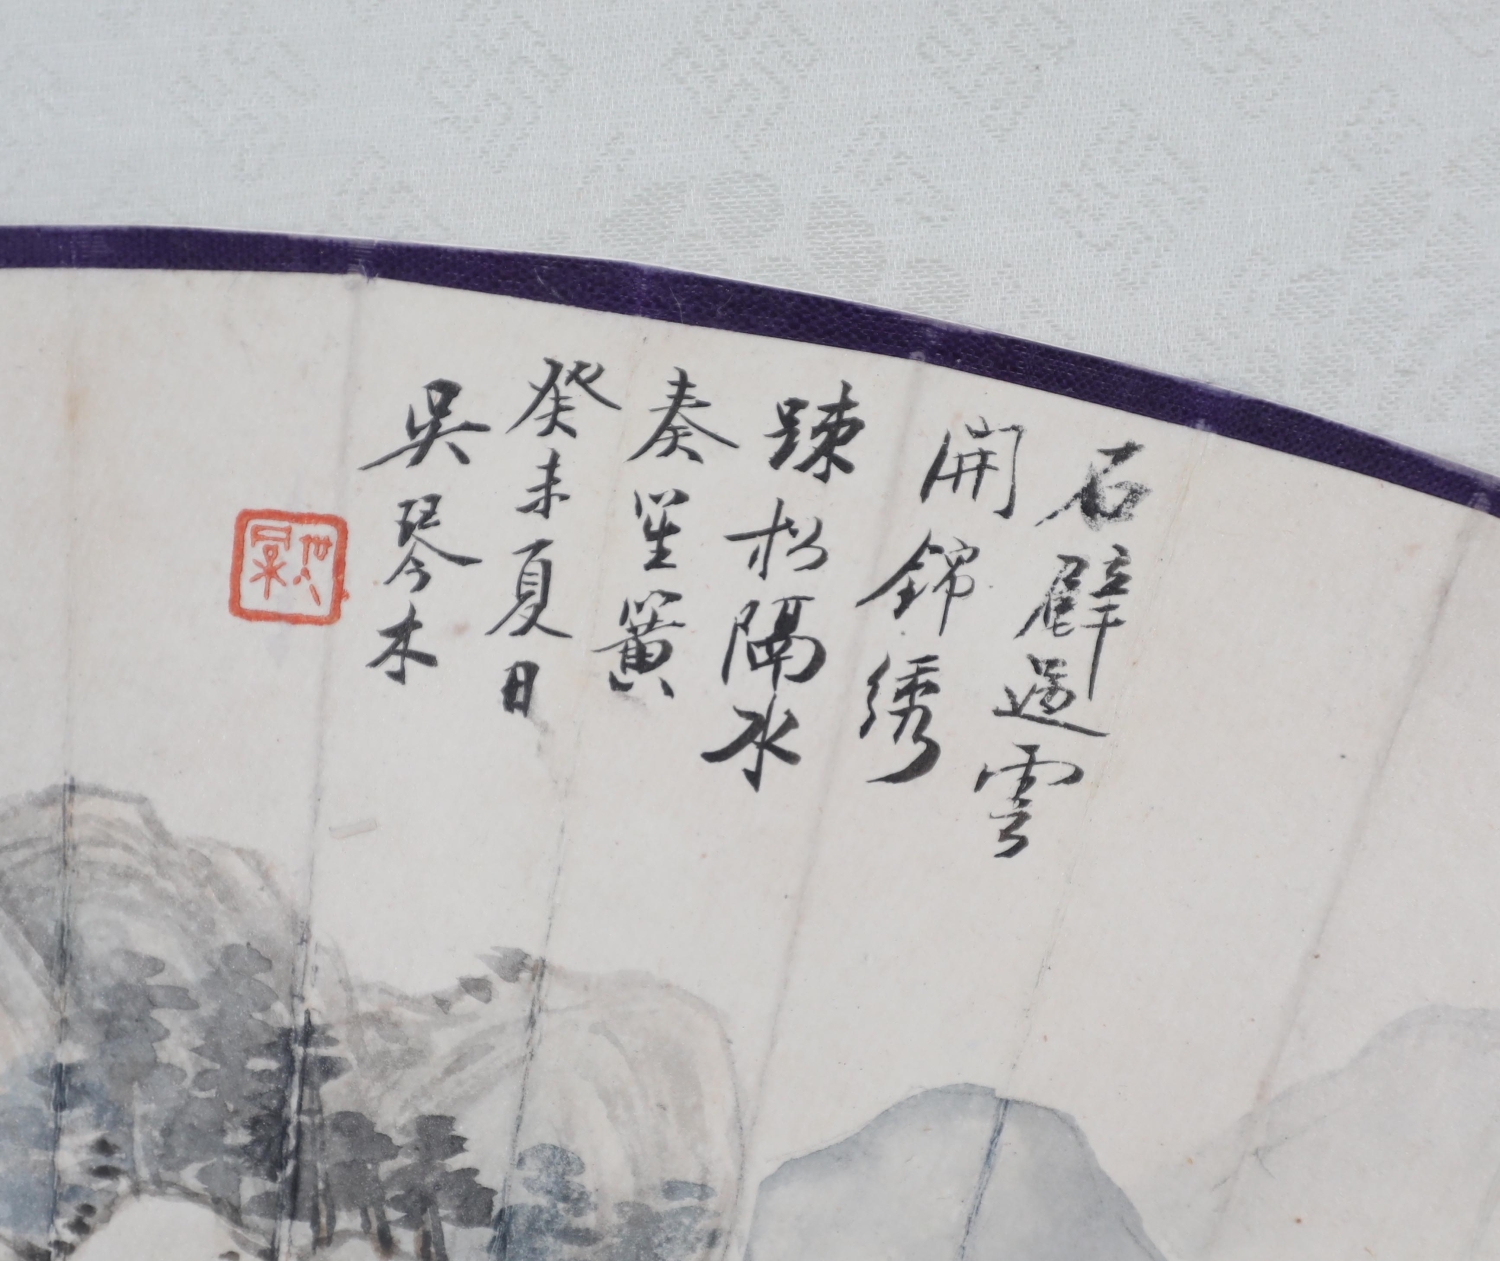 石壁過雲
開錦綉
疎松隔水
奏笙簧
癸未夏日
吳琴木